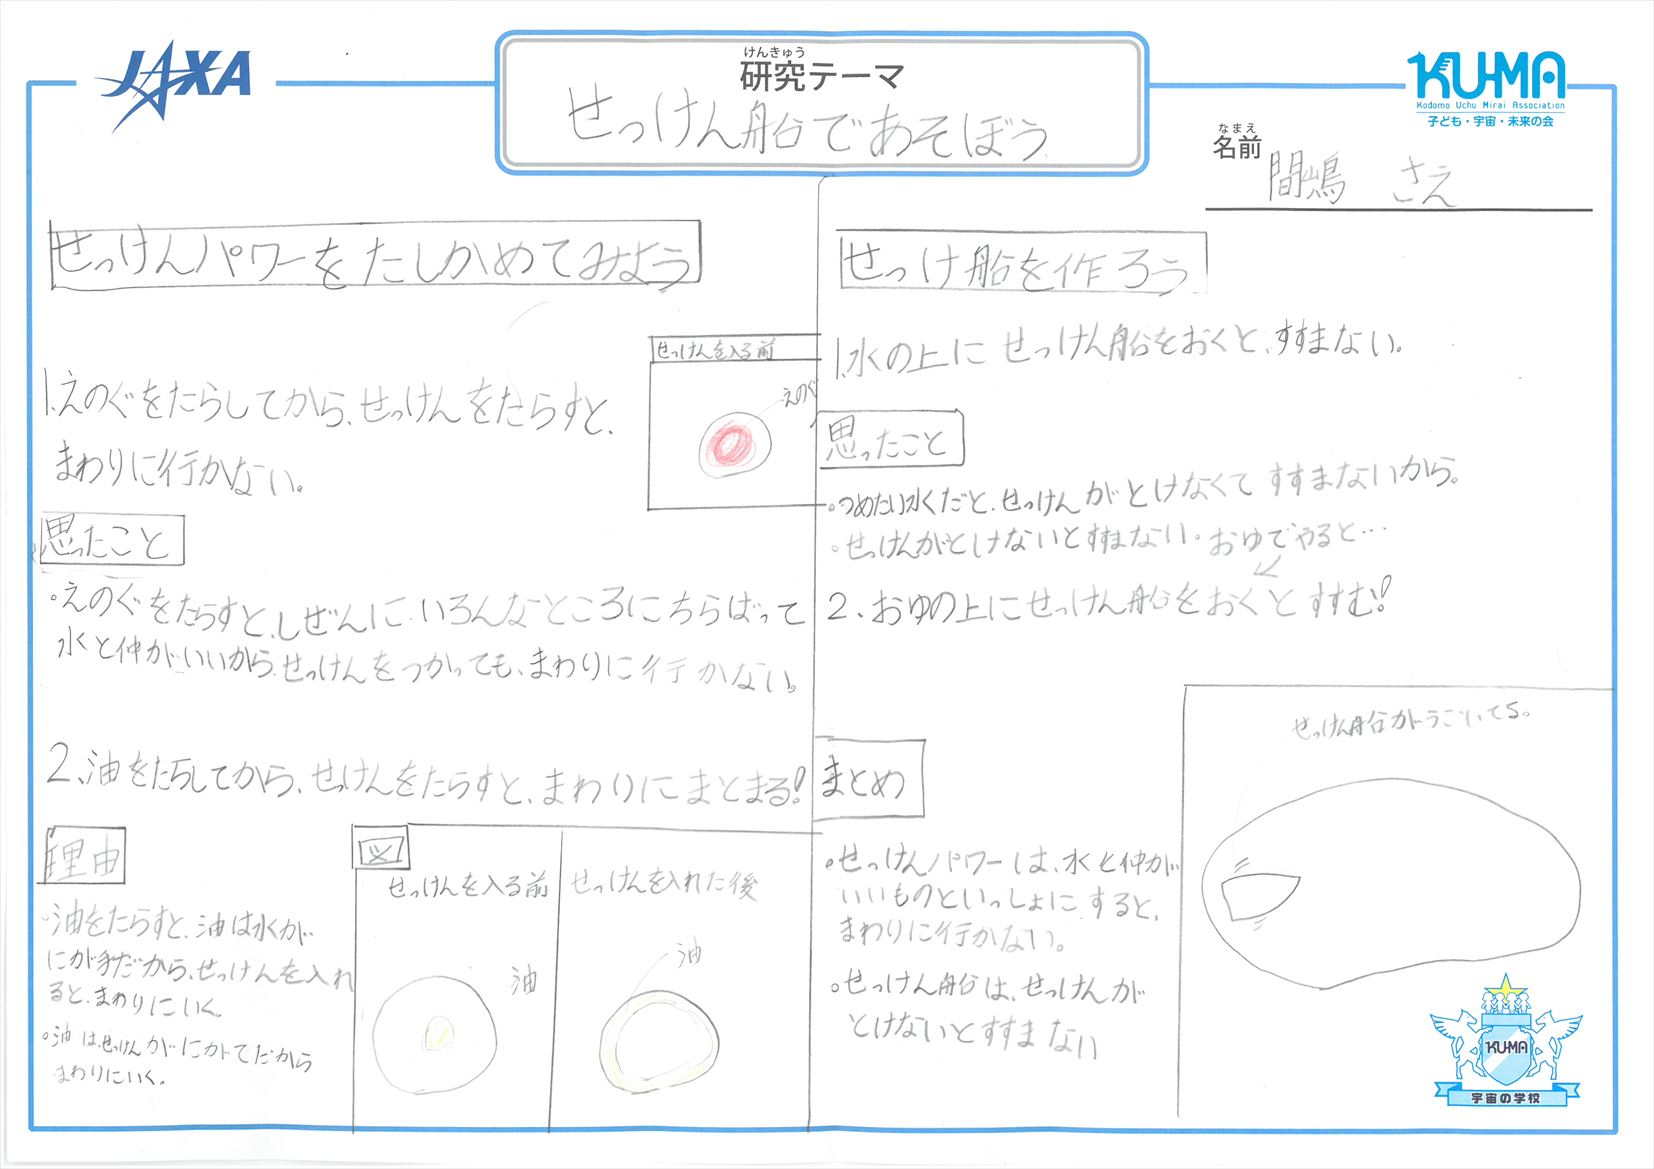 JAXA
けんきゅう
研究テーマ
せっけん船であそぼう
KU-MA
Kodomo Uchu Mirai Association
子ども・宇宙・未来の会
なまえ
名前
間嶋 さえ
せっけんパワーをたしかめてみよう
1.えのぐをたらしてから、せっけんをたらすと、
まわりに行かない。
せっけんを入る前
えのぐ
思ったこと
・えのぐをたらすと、しぜんに、いろんなところにちらばって
水と仲がいいから、せっけんをつかっても、まわりに行かない。
2、油をたらしてから、せっけんをたらすと、まわりにまとまる!
理由
・油をたらすと、油は水がが
にが手だから、せっけんを入れ
ると、まわりにいく。
・油は、せっけんがにがてだから
まわりにいく。
図
せっけんを入る前
油
せっけんを入れた後
油
せっけ船を作ろう
1.水の上にせっけん船をおくと、すすまない。
思ったこと
・つめたい水くだと、せっけんがとけなくてすすまないから。
・せっけんがとけないとすすまない。おゆでやると…
2、おゆの上にせっけん船をおくとすすむ!
せっけん船がうごいてる。
まとめ
・せっけんパワーは、水と仲が
いいものといっしょにすると、
まわりに行かない。
・せっけん船は、せっけんが
とけないとすすまない
KU-MA
宇宙の学校